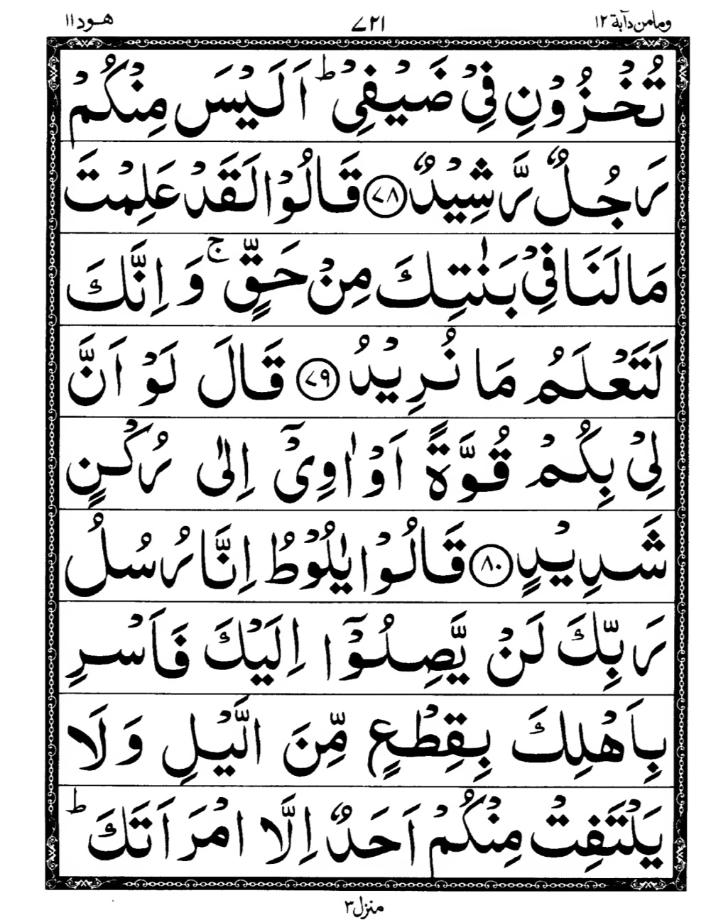 وما من دآبة ١٢ ٧٢١ هود ١١
تُخْزُوْنِ فِیْ ضَیْفِیْ ؕ اَلَیْسَ مِنْكُمْ
رَجُلٌ رَّشِیْدٌ ﴿۷۸﴾ قَالُوْا لَقَدْ عَلِمْتَ
مَا لَنَا فِیْ بَنٰتِكَ مِنْ حَقٍّ ۚ وَ اِنَّكَ
لَتَعْلَمُ مَا نُرِیْدُ ﴿۷۹﴾ قَالَ لَوْ اَنَّ
لِیْ بِكُمْ قُوَّةً اَوْ اٰوِیْۤ اِلٰی رُكْنٍ
شَدِیْدٍ ﴿۸۰﴾ قَالُوْا یٰلُوْطُ اِنَّا رُسُلُ
رَبِّكَ لَنْ یَّصِلُوْۤا اِلَیْكَ فَاَسْرِ
بِاَهْلِكَ بِقِطْعٍ مِّنَ الَّیْلِ وَ لَا
یَلْتَفِتْ مِنْكُمْ اَحَدٌ اِلَّا امْرَاَتَكَ ؕ
منزل ٣